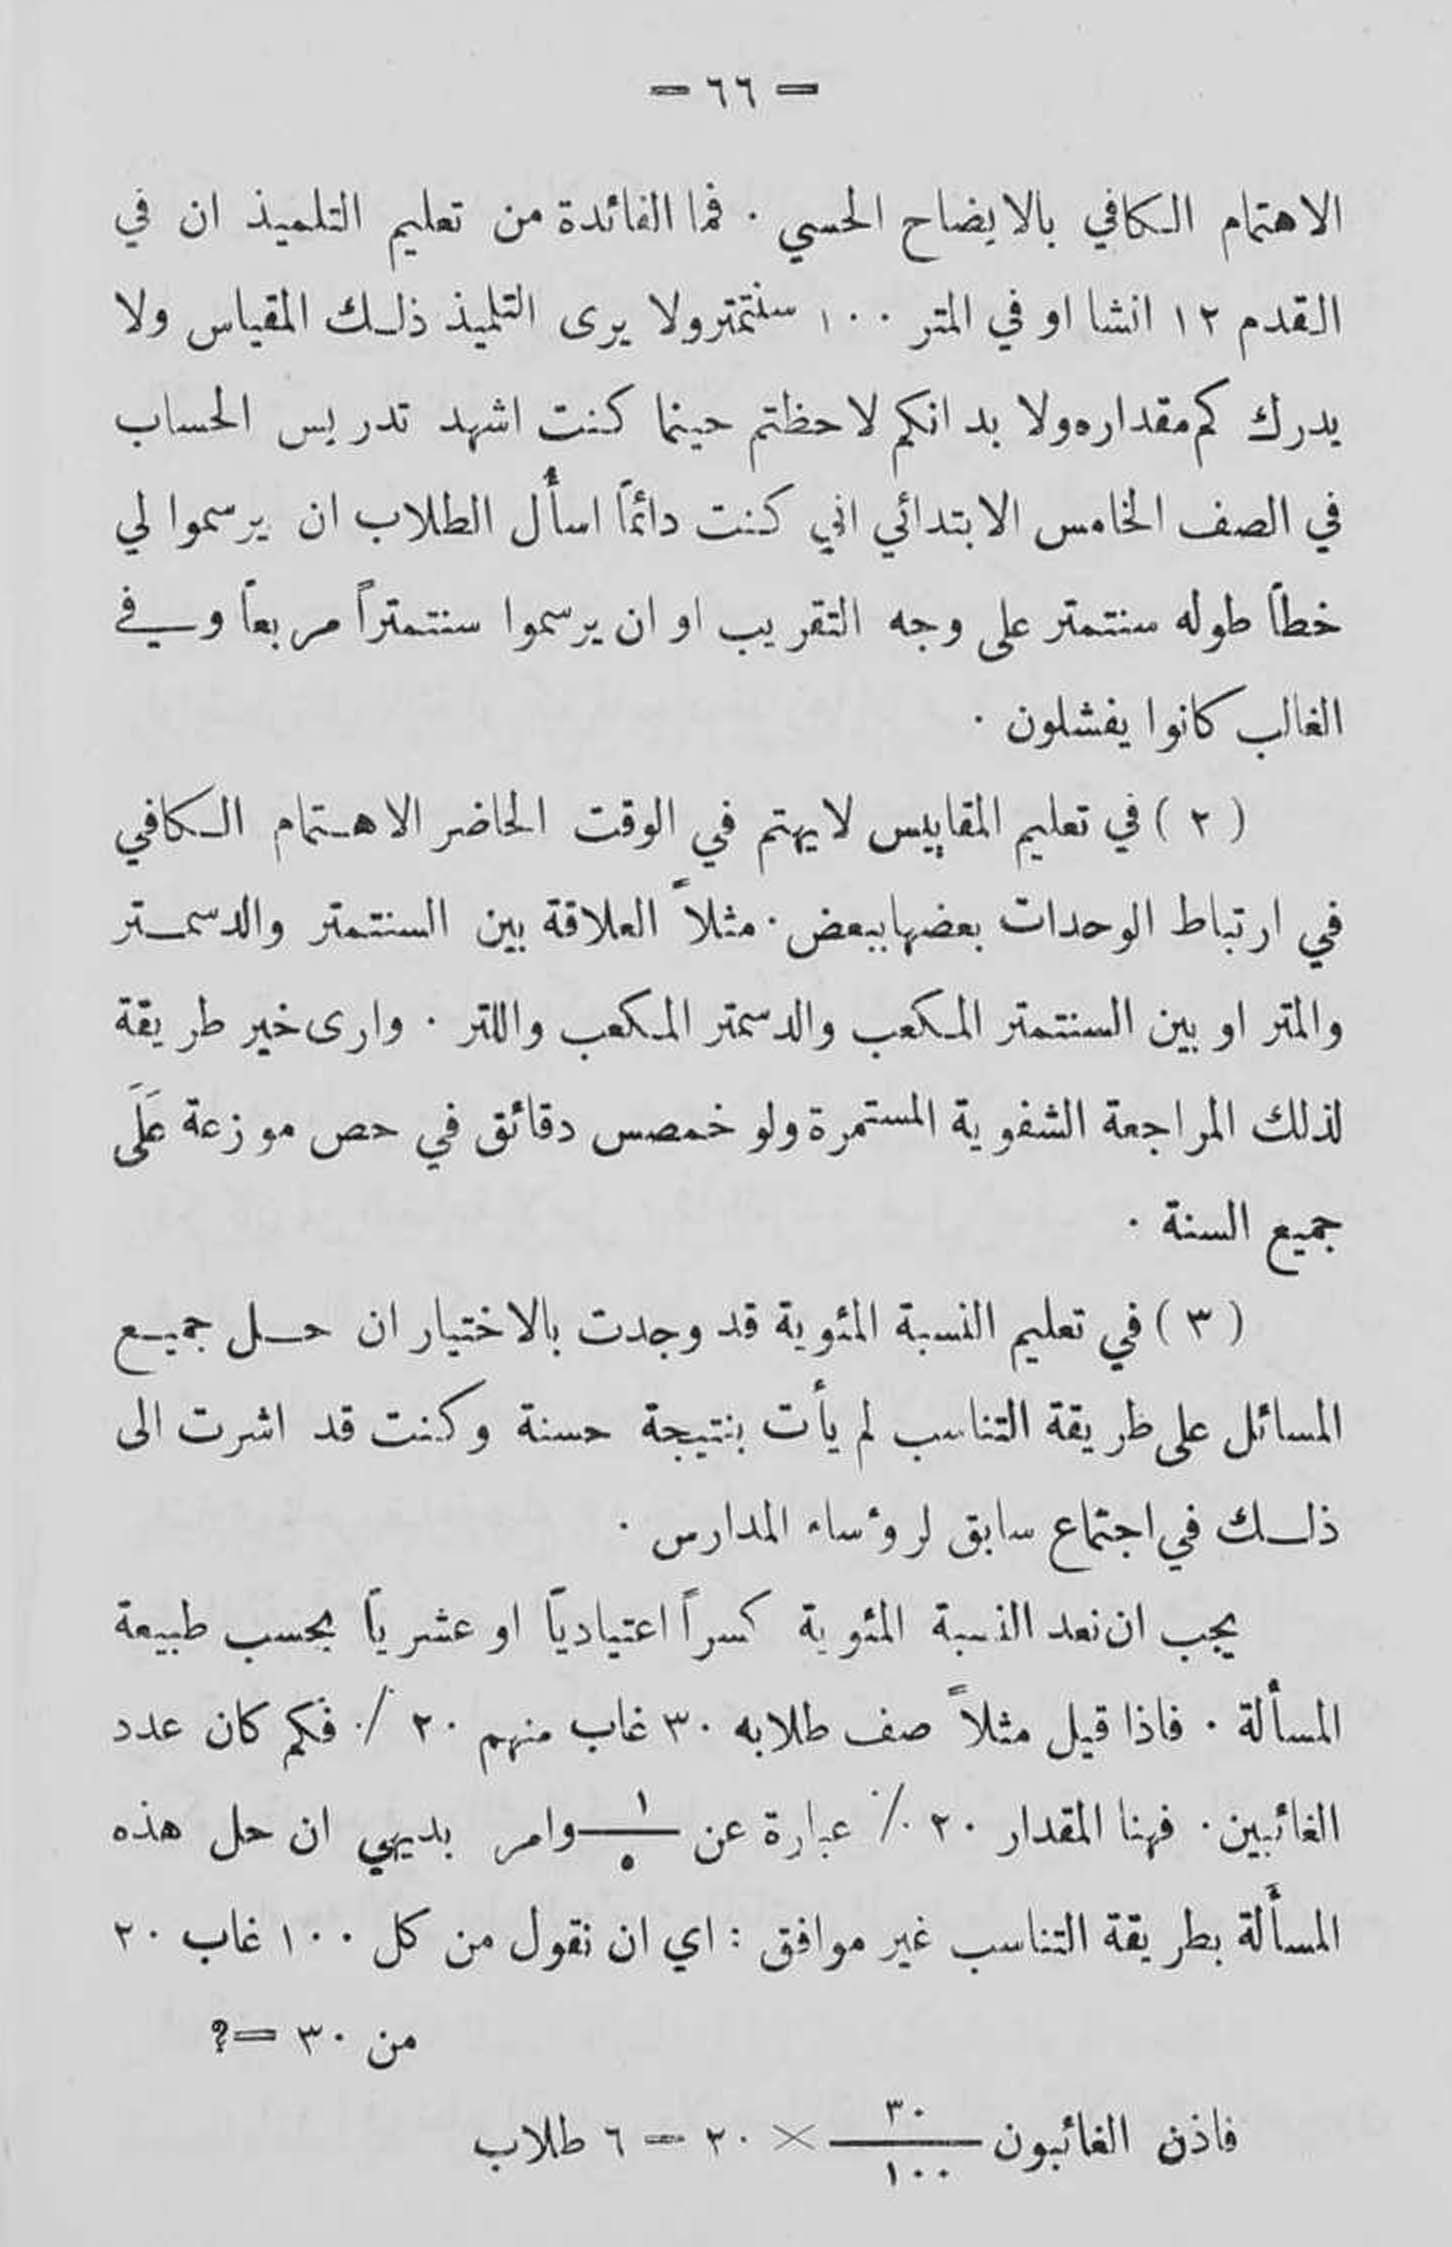 = ٦٦ =
الاهتمام الكافي بالايضاح الحسي . فما الفائدة من تعليم التلميذ ان في
القدم ١٢ انشا او في المتر ١٠٠ سنتمتر ولا يرى التلميذ ذلك المقياس ولا
يدرك كم مقداره ولا بد انكم لاحظتم حينما كنت اشهد تدريس الحساب
في الصف الخامس الابتدائي اني كنت دائماً اسأل الطلاب ان يرسموا لي
خطاً طوله سنتمتر على وجه التقريب او ان يرسموا سنتمتراً مربعاً وفي
الغالب كانوا يفشلون .
( ٢ ) في تعليم المقاييس لا يهتم في الوقت الحاضر الاهتمام الكافي
في ارتباط الوحدات بعضها ببعض . مثلاً العلاقة بين السنتمتر والدسمتر
والمتر او بين السنتمتر المكعب والدسمتر المكعب واللتر . وارى خير طريقة
لذلك المراجعة الشفوية المستمرة ولو خمصس دقائق في حص موزعة عَلَى
جميع السنة .
( ٣ ) في تعليم النسبة المئوية قد وجدت بالاختيار ان حل جميع
المسائل على طريقة التناسب لم يأت بنتيجة حسنة وكنت قد اشرت الى
ذلك في اجتماع سابق لرؤساء المدارس .
يجب ان نعد النسبة المئوية كسراً اعتيادياً او عشرياً بحسب طبيعة
المسألة . فاذا قيل مثلاً صف طلابه ٣٠ غاب منهم ٢٠ ٪ فكم كان عدد
الغائبين . فهنا المقدار ٢٠ ٪ عبارة عن ١/٥ وامر بديهي ان حل هذه
المسألة بطريقة التناسب غير موافق : اي ان نقول من كل ١٠٠ غاب ٢٠
من ٣٠ =؟
فاذن الغائبون ٣٠/١٠٠ × ٢٠ = ٦ طلاب